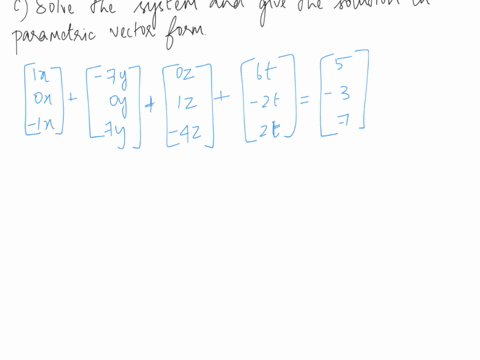 c) Solve the system and give the solution in
parametric vector form
[1x 0x -1x] + [-7y 0y 7y] + [0z 1z -4z] + [6t -2t 2t] = [5 -3 =7]